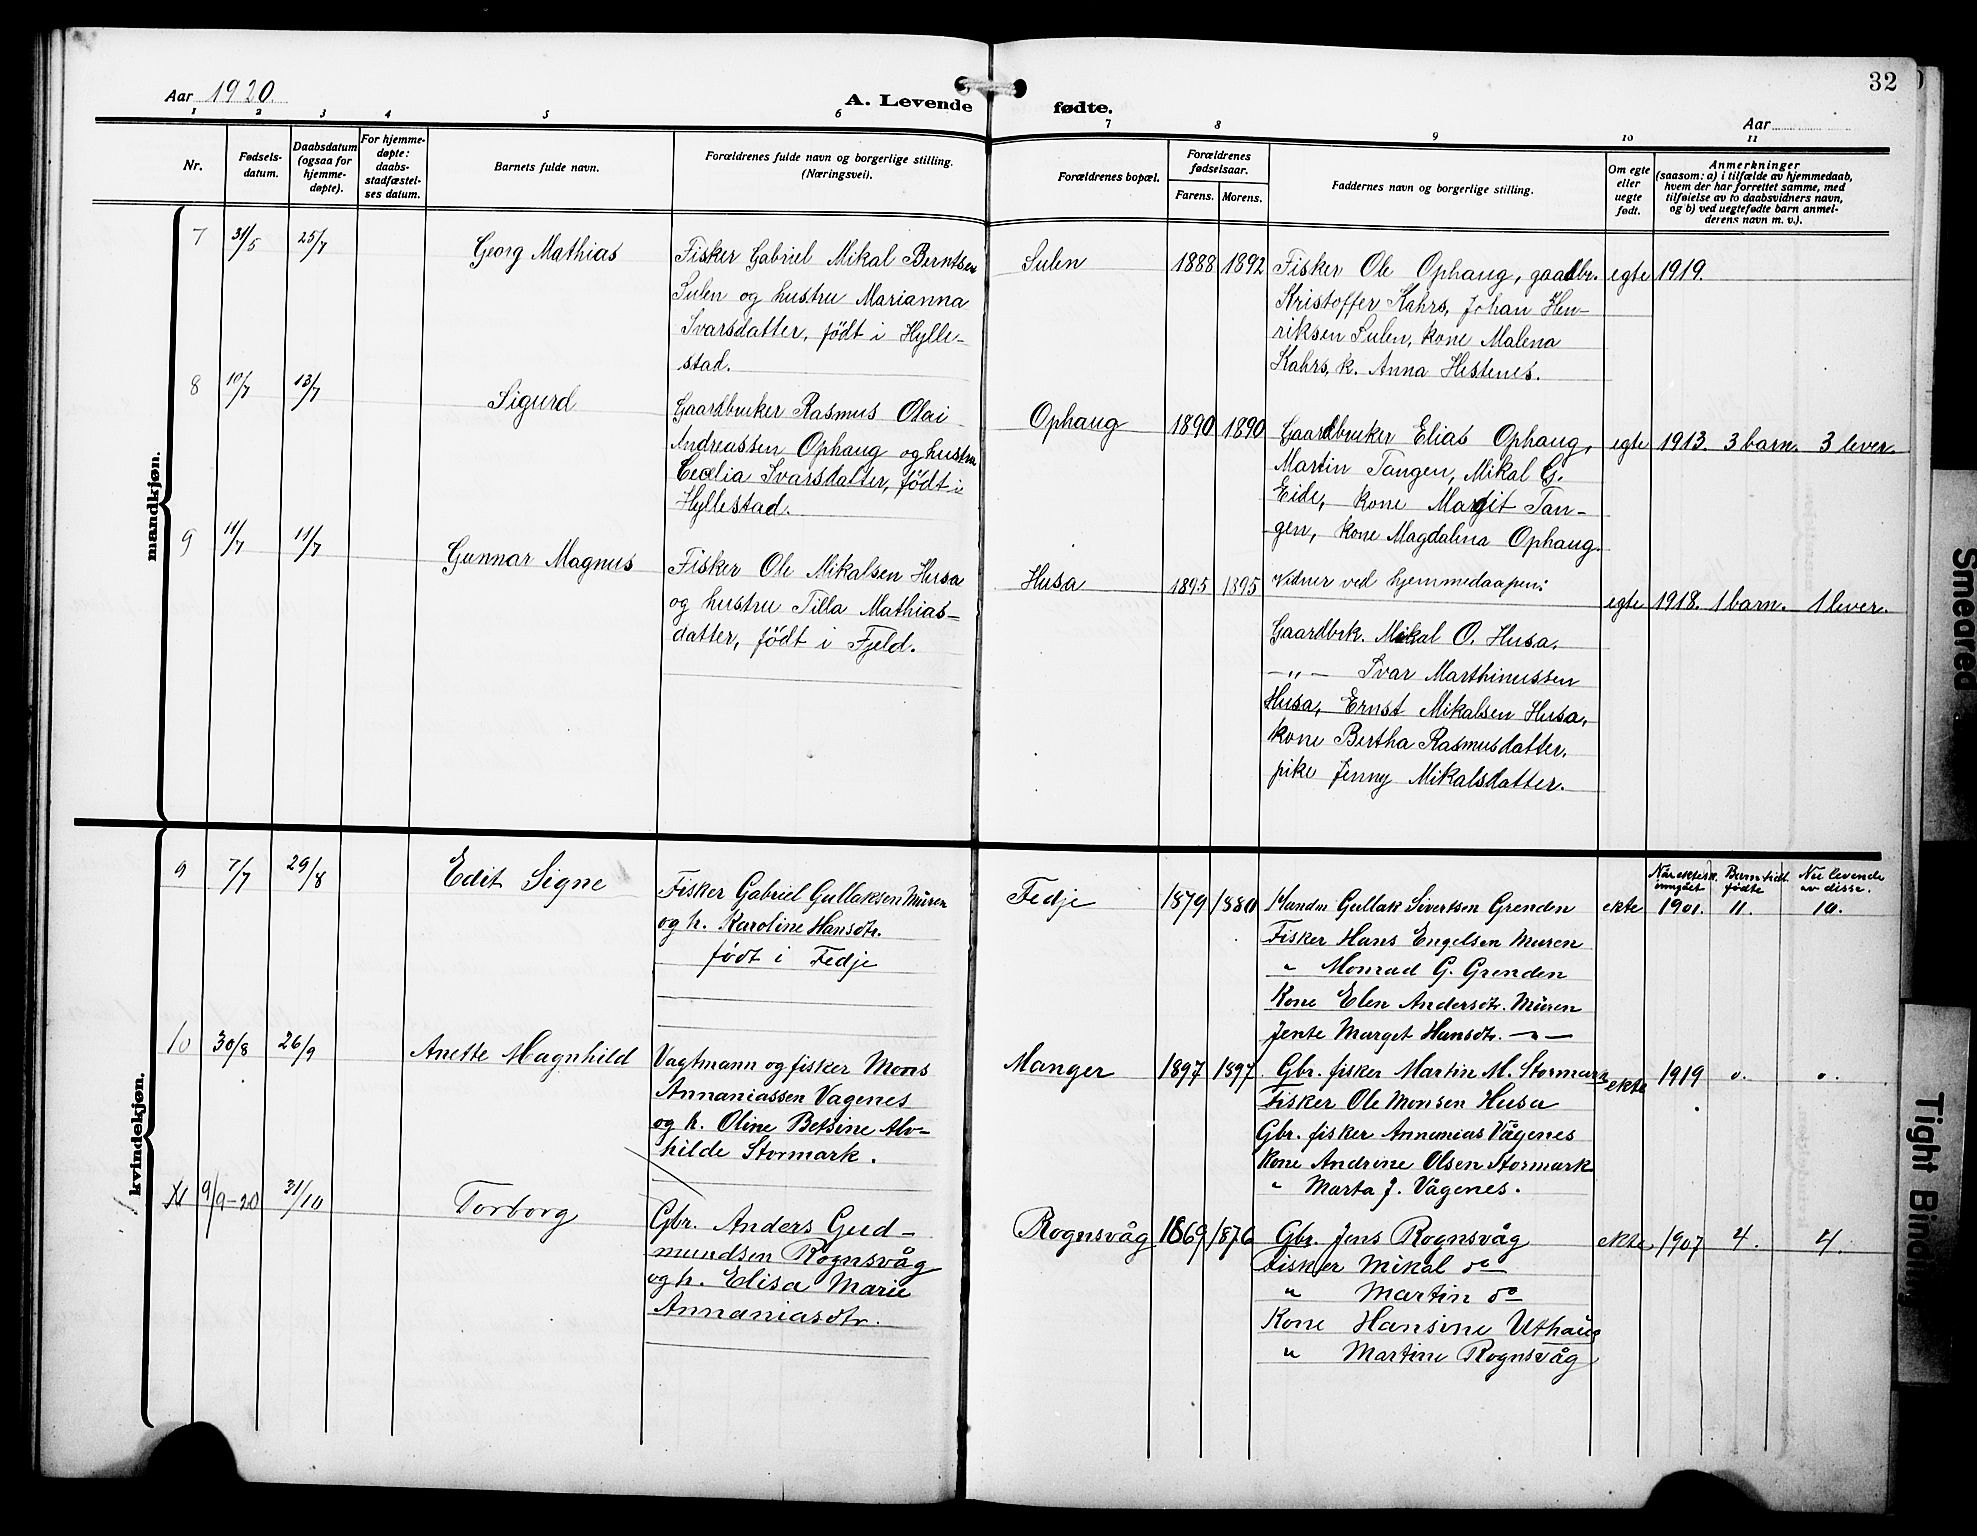 Aar 1920.
A. Levende fødte.
Aar
32
1 2 3 4 5 6 7 8 9 10 11
Nr.
Fødsels-
datum.
Daabsdatum
(ogsaa for
hjemme-
døpte).
For hjemme-
døpte:
daabs-
stadfæstel-
ses datum.
Barnets fulde navn.
Forældrenes fulde navn og borgerlige stilling.
(Næringsvei).
Forældrenes bopæl.
Forældrenes
fødselsaar.
Farens. Morens.
Faddernes navn og borgerlige stilling.
Om egte
eller
uegte
født.
Anmerkninger
(saasom: a) i tilfælde av hjemmedaab,
hvem der har forrettet samme, med
tilføielse av to daabsvidners navn,
og b) ved uegtefødte barn anmel-
derens navn m. v.).
mandkjøn.
7 31/5 25/7 Georg Mathias
Fisker Gabriel Mikal Berntsen
Sulen og hustru Marianna
Ivarsdatter, født i Hylle-
stad.
Sulen 1888 1892
Fisker Ole Ophaug, gaardbr.
Kristoffer Kahrs, Johan Hen-
riksen Sulen, kone Malena
Kahrs, k. Anna Hestenes.
egte 1919.
8 10/7 13/7 Sigurd
Gaardbruker Rasmus Olai
Andreassen Ophaug og hustru
Cecilia Ivarsdatter, født i
Hyllestad.
Ophaug 1890 1890
Gaardbruker Elias Ophaug,
Martin Tangen, Mikal G.
Eide, kone Margit Tan-
gen, kone Magdalena Ophaug.
egte 1913. 3 barn. 3 lever.
9 11/7 11/7 Gunnar Magnus
Fisker Ole Mikalsen Husa
og hustru Tilla Mathias-
datter, født i Fjeld.
Husa 1895 1895
Vidner ved hjemmedaapen:
Gaardbrk. Mikal O. Husa,
-„- Ivar Marthinussen
Husa, Ernst Mikalsen Husa,
kone Bertha Rasmusdatter,
pike Jenny Mikalsdatter.
egte 1918. 1 barn. 1 lever.
kvindekjøn.
9 7/7 29/8 Edit Signe
Fisker Gabriel Gullaksen Muren
og h. Karoline Hansdtr.
født i Fedje
Fedje 1879 1880
Handm Gullak Sivertsen Grenden
Fisker Hans Engelsen Muren
" Monrad G. Grenden
Kone Elen Andersdtr. Muren
Jente Marget Hansdtr. -"-
ekte
Når ektesk.
inngået
1901.
Barn født
fødte
11.
Nu levende
av disse.
10.
10 30/8 26/9 Anette Magnhild
Vagtmann og fisker Mons
Annaniassen Vagenes
og h. Oline Betsine Alv-
hilde Stormark.
Manger 1897 1897
Gbr. fisker Martin M. Stormark
Fisker Ole Monsen Husa
Gbr. fisker Annanias Vågenes
Kone Andrine Olsen Stormark
" Marta J. Vågenes.
ekte 1919 0. 0.
11 9/9-20 31/10 Torborg
Gbr. Anders Gud-
mundsen Rognsvåg
og h. Elisa Marie
Annaniasdtr.
Rognsvåg 1869 1876
Gbr. Jens Rognsvåg
Fisker Mikal do
" Martin do
Kone Hansine Uthaug
" Martine Rognsvåg
ekte 1907 4. 4.
Smeared
Tight Binding